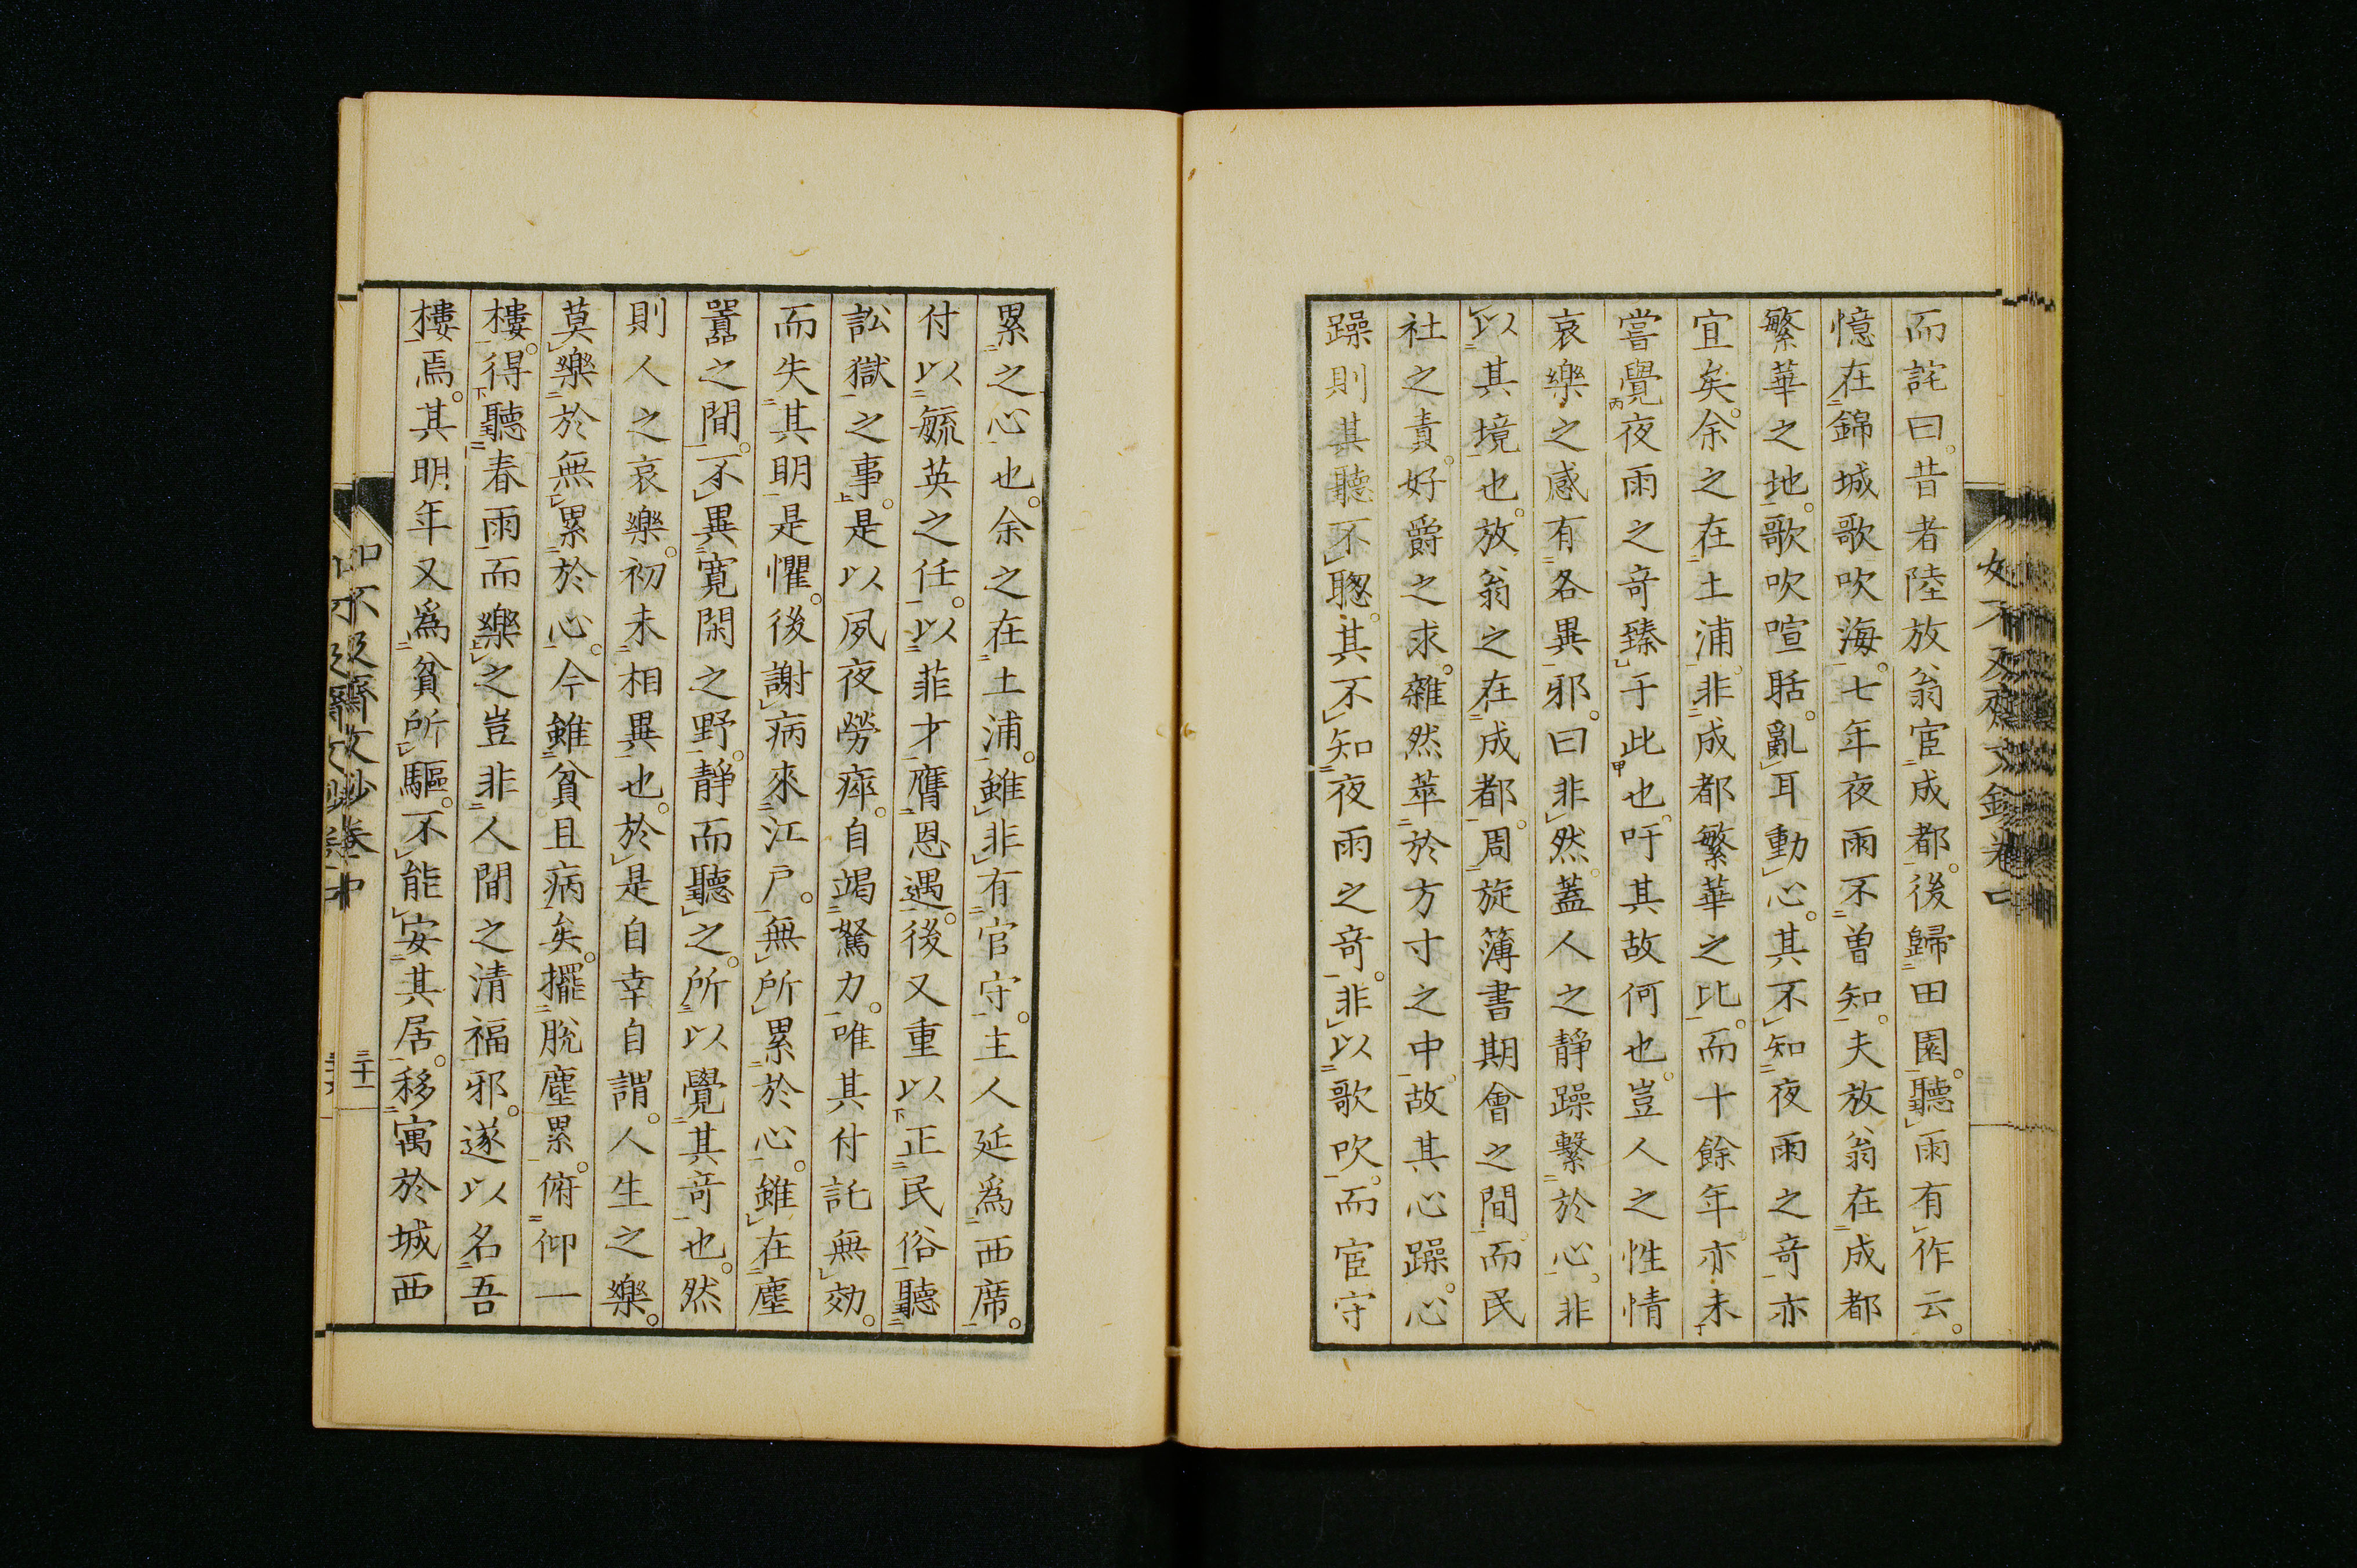 而詫曰。昔者陸放翁宦成都。後歸田園。聽雨有作云。
憶在錦城歌吹海。七年夜雨不曾知。夫放翁在成都
繁華之地。歌吹喧聒。亂耳動心。其不知夜雨之奇亦
宜矣。余之在土浦。非成都繁華之比。而十餘年亦未
嘗覺夜雨之奇臻于此也。吁其故何也。豈人之性情
哀樂之感有各異邪。曰非然。蓋人之靜躁繫於心。非
以其境也。放翁之在成都。周旋簿書期會之間。而民
社之責。好爵之求。雜然萃於方寸之中。故其心躁。心
躁則其聽不聰。其不知夜雨之奇。非以歌吹。而宦守
累之心也。余之在土浦。雖非有官守。主人延爲西席。
付以毓英之任。以菲才膺恩遇。後又重以正民俗聽
訟獄之事。是以夙夜勞瘁。自竭駑力。唯其付託無効。
而失其明是懼。後謝病來江戶。無所累於心。雖在塵
囂之間。不異寬閑之野。靜而聽之。所以覺其奇也。然
則人之哀樂。初未相異也。於是自幸自謂。人生之樂。
莫樂於無累於心。今雖貧且病矣。擺脫塵累。俯仰一
樓。得聽春雨而樂之豈非人間之清福邪。遂以名吾
樓焉。其明年又爲貧所驅。不能安其居。移寓於城西
如不及齋文鈔卷中
二十一